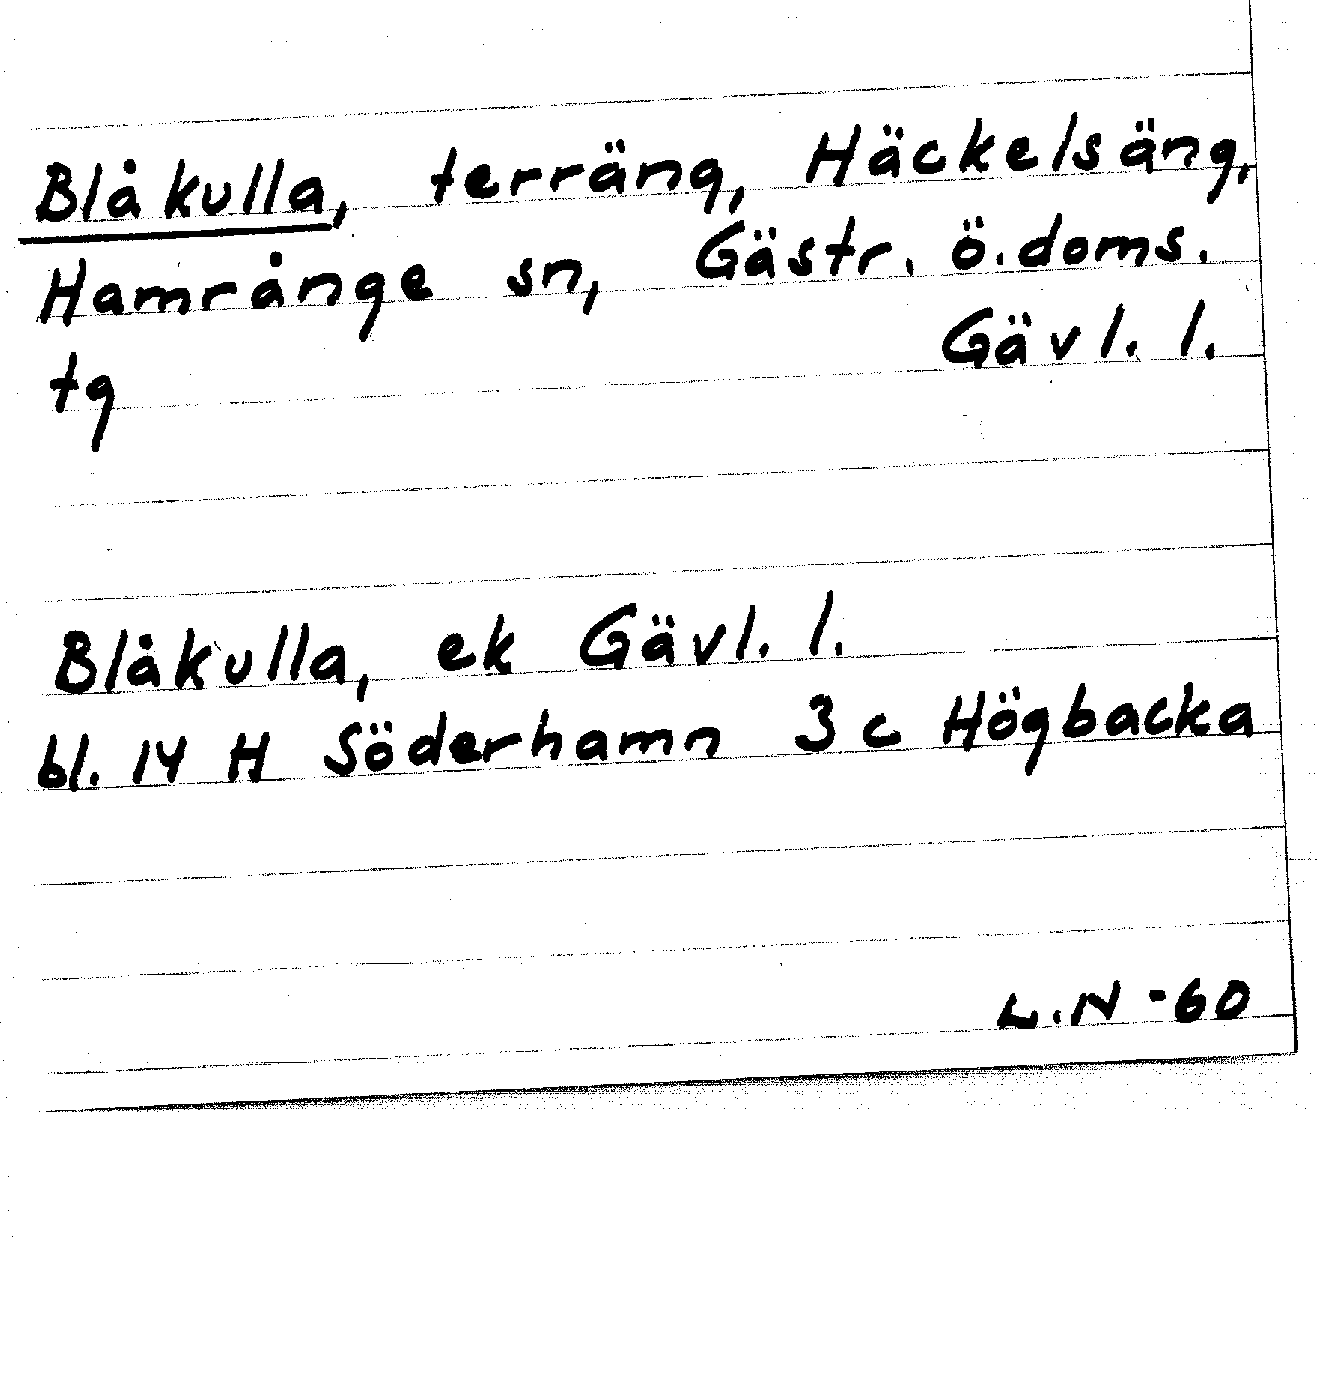 Blåkulla, terräng, Häckelsäng,
Hamrånge sn, Gästr. ö. doms.
tg Gävl. l.
Blåkulla, ek Gävl. l.
bl. 14 H Söderhamn 3 c Högbacka
L.N -60